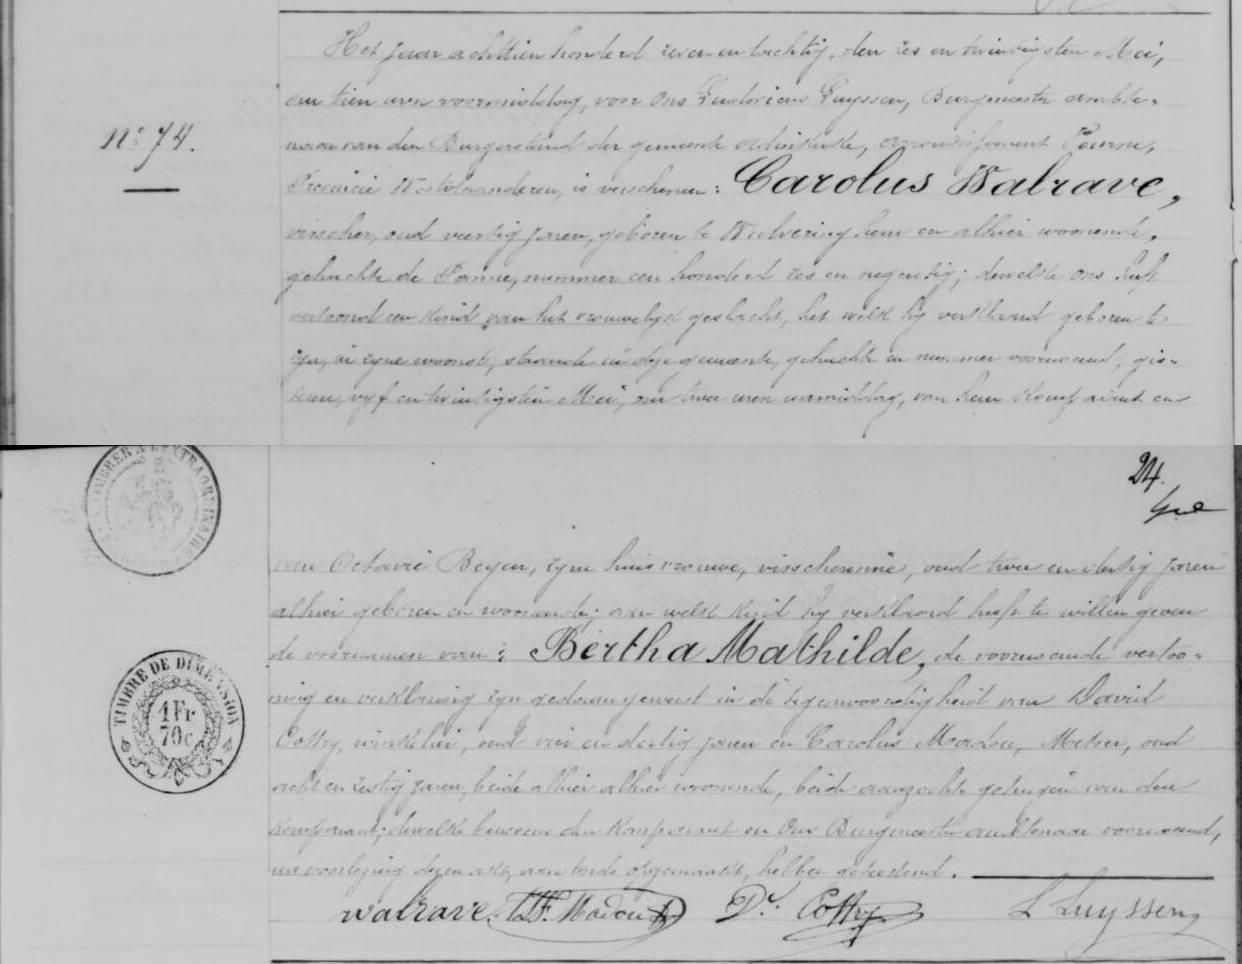 Het jaar achttien honderd zeven en tachtig, den zes en twintigsten Mei,
om tien uren voormiddag, voor Ons Ludovicus Luyssen, Burgemeester ambte-
naar van den Burgerstand der gemeente Adinkerke, arrondissement Veurne,
Nº 74.
Provincie Westvlaanderen, is verschenen: Carolus Walrave,
visscher, oud veertig jaren, geboren te Wulveringhem en alhier woonende,
gehuchte de Panne, nummer een honderd zes en negentig; dewelke Ons heeft
vertoond een kind van het vrouwelyk geslacht, het welk hy verklaard geboren te
zyn, in zyne woonst, staande in deze gemeente, gehuchte en nummer voornoemd, gis-
teren, vyf en twintigsten Mei, om twee uren namiddag, van hem Komparant en
TIMBRER A L'EXTRAORDINAIRE
24.
van Octavie Beyen, zyne huisvrouwe, visscherinne, oud twee en dertig jaren
alhier geboren en woonende; aan welk kind hy verklaard heeft te willen geven
de voornamen van: Bertha Mathilde, de voornoemde vertoo-
ning en verklaring zyn gedaan geweest in de tegenwoordigheid van David
TIMBRE DE DIMENSION
1 Fr
70c
Cottry, winkelier, oud vier en dertig jaren en Carolus Madou, Metser, oud
acht en zestig jaren, beide alhier alhier woonende, beide aangezochte getuigen van den
Komparant; dewelke benevens den Komparant en Ons Burgemeester ambtenaar voornoemd,
na voorlezing dezer akt, aan hunlieden opgemaakt, hebben geteekend.
Walrave. F. Madou Dd. Cottry L Luyssen